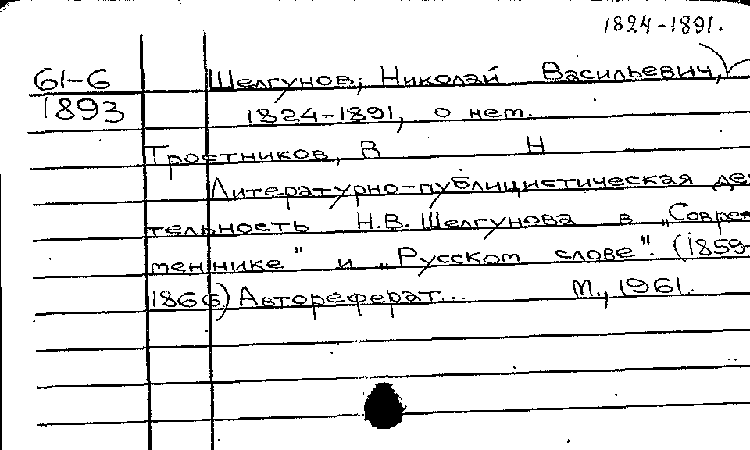 1824-1891.
61-6 Шелгунов, Николай Васильевич,
1893 1824-1891, о нем.
Тростников, В Н
Литературно-публицистическая дея
тельность Н.В. Шелгунова в „Совре
меннике" и „Русском слове". (1859-
1866) Автореферат... М., 1961.